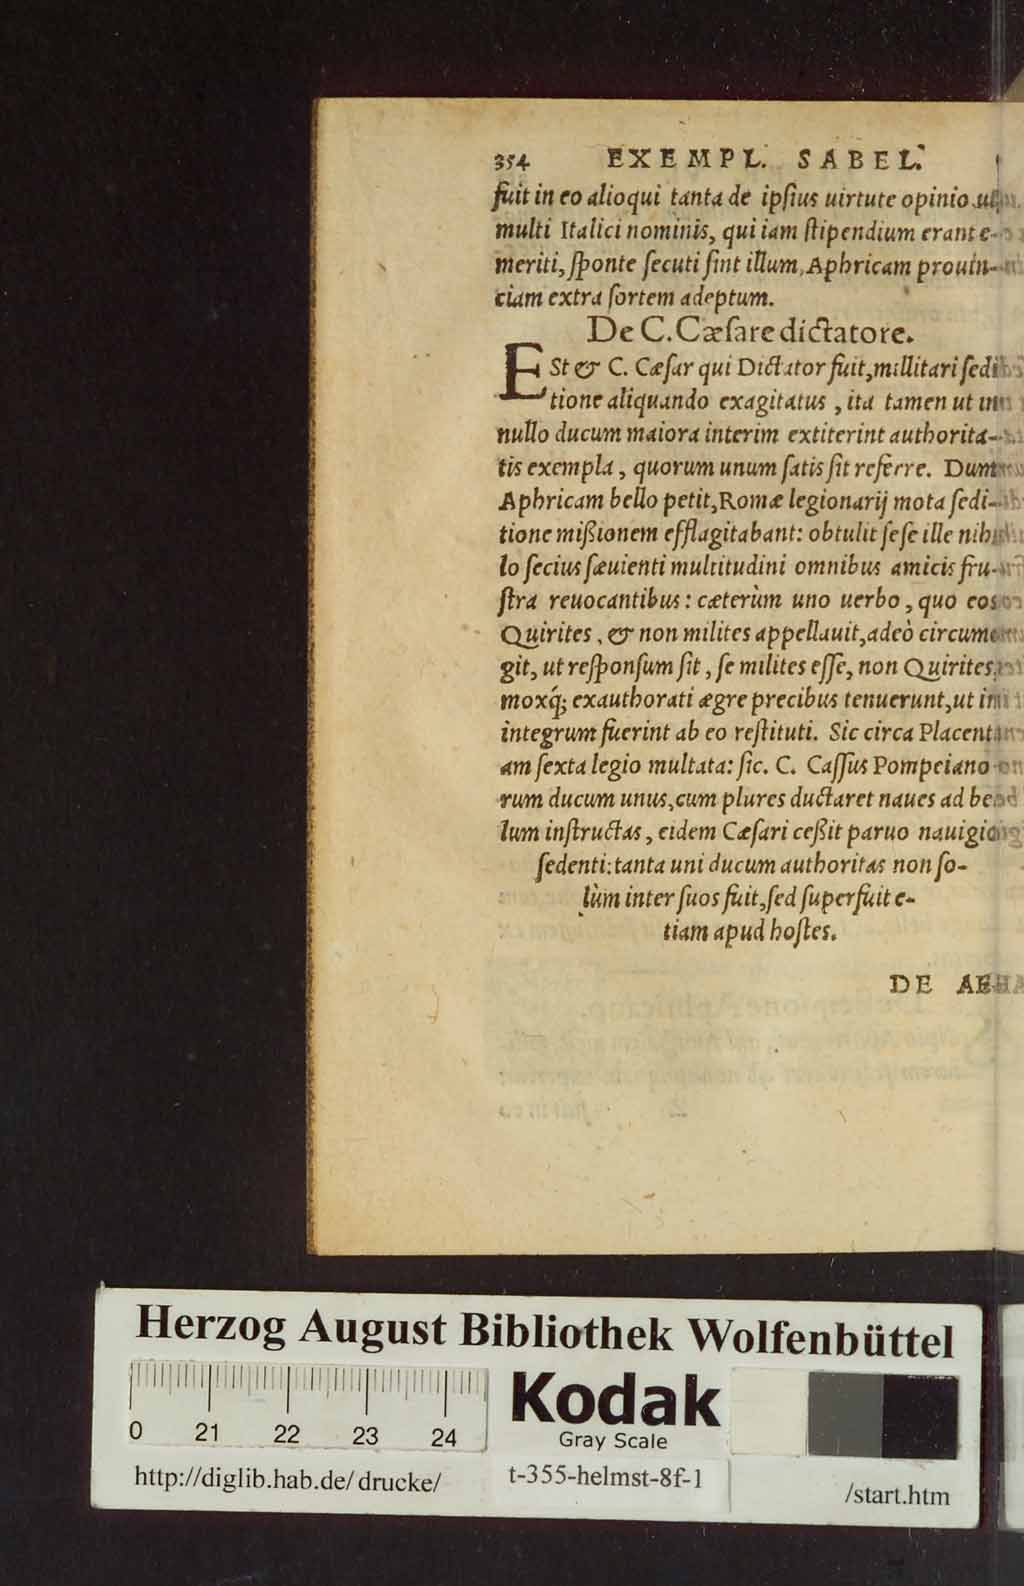 354 EXEMPL. SABEL.
fuit in eo alioqui tanta de ipſius uirtute opinio ut
multi Italici nominis, qui iam ſtipendium erant e-
meriti, ſponte ſecuti ſint illum, Aphricam prouin-
ciam extra ſortem adeptum.
De C. Cæſare dictatore.
ESt & C. Cæſar qui Dictator fuit, millitari ſedi
tione aliquando exagitatus, ita tamen ut in
nullo ducum maiora interim extiterint authorita-
tis exempla, quorum unum ſatis ſit referre. Dum
Aphricam bello petit, Romæ legionarij mota ſedi-
tione mißionem efflagitabant: obtulit ſeſe ille nihi
lo ſecius ſæuienti multitudini omnibus amicis fru-
ſtra reuocantibus: cæterùm uno uerbo, quo eos
Quirites, & non milites appellauit, adeò circume
git, ut reſponſum ſit, ſe milites eſſe, non Quirites,
moxq́; exauthorati ægre precibus tenuerunt, ut in
integrum fuerint ab eo reſtituti. Sic circa Placenti
am ſexta legio multata: ſic. C. Caſſus Pompeiano
rum ducum unus, cum plures ductaret naues ad bel
lum inſtructas, eidem Cæſari ceßit paruo nauigio
ſedenti: tanta uni ducum authoritas non ſo-
lùm inter ſuos fuit, ſed ſuperfuit e-
tiam apud hoſtes.
DE
Herzog August Bibliothek Wolfenbüttel
0 21 22 23 24
Kodak
Gray Scale
http://diglib.hab.de/drucke/
t-355-helmst-8f-1
/start.htm